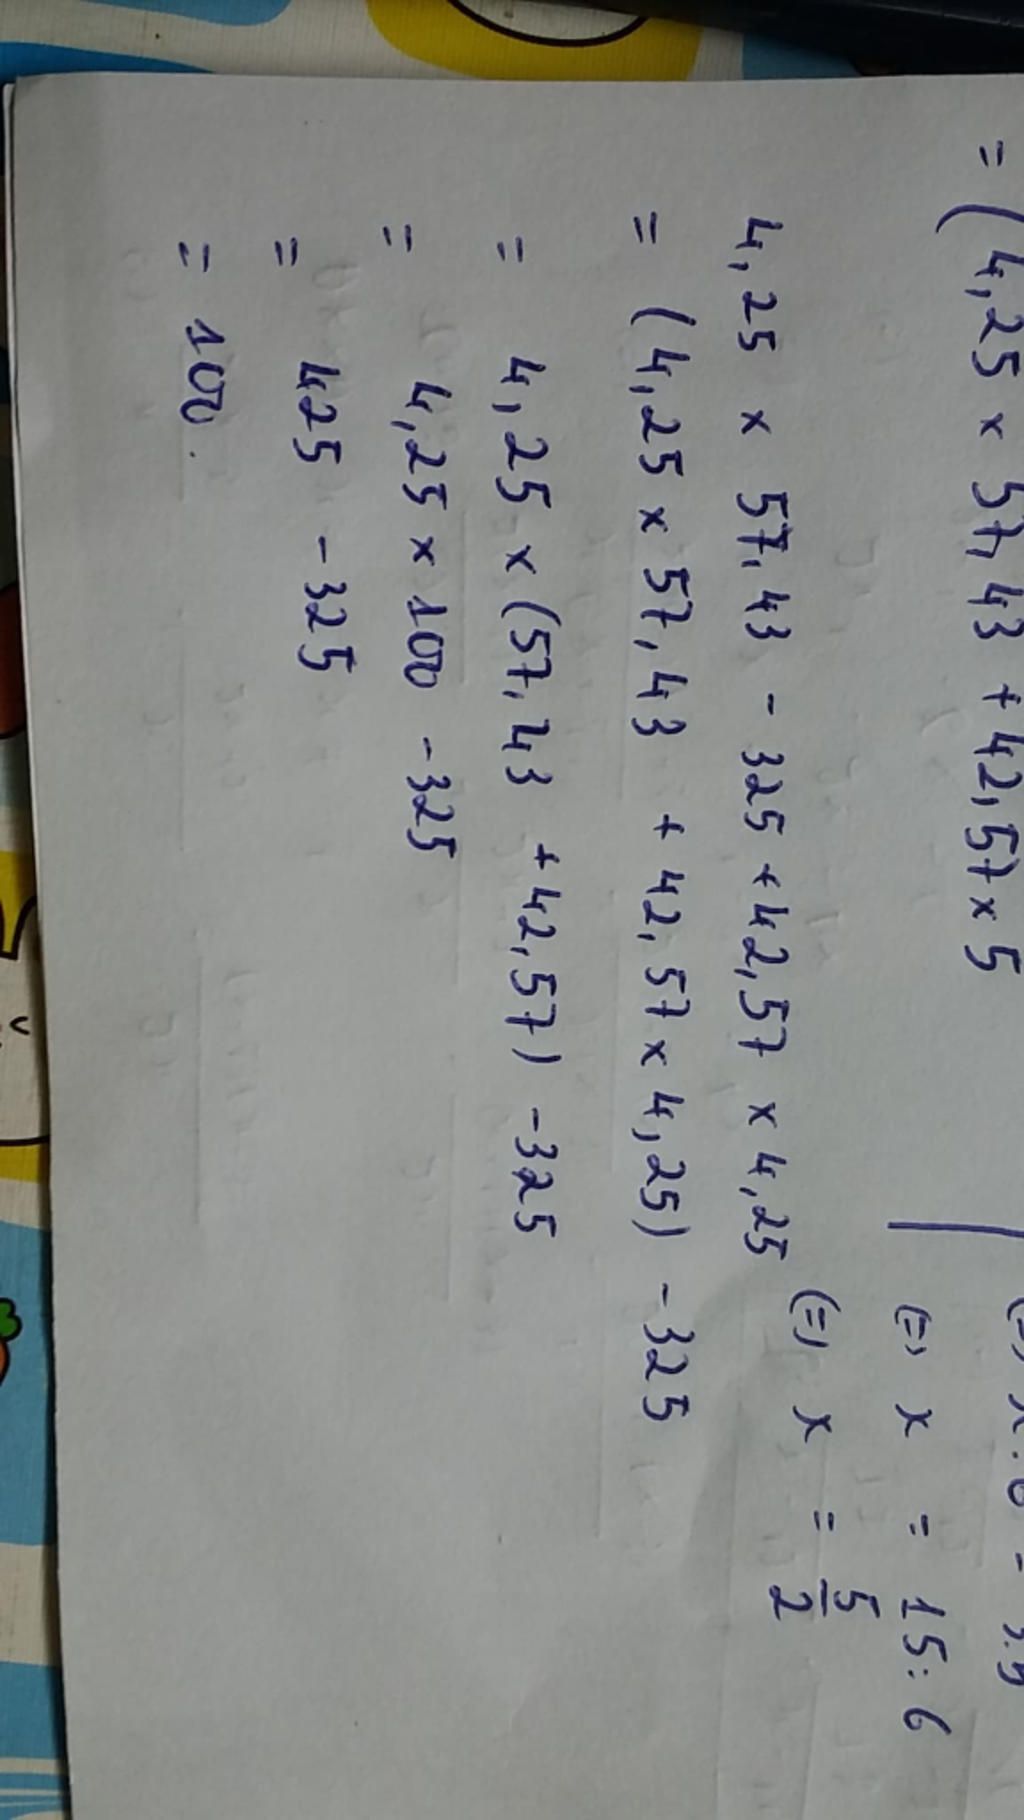 = (4,25 x 57,43 + 42,57 x 5
4,25 x 57,43 - 325 + 42,57 x 4,25
= (4,25 x 57,43 + 42,57 x 4,25) - 325
= 4,25 x (57,43 + 42,57) - 325
= 4,25 x 100 - 325
= 425 - 325
= 100.
(=) x = 15 : 6
(=) x = 5/2